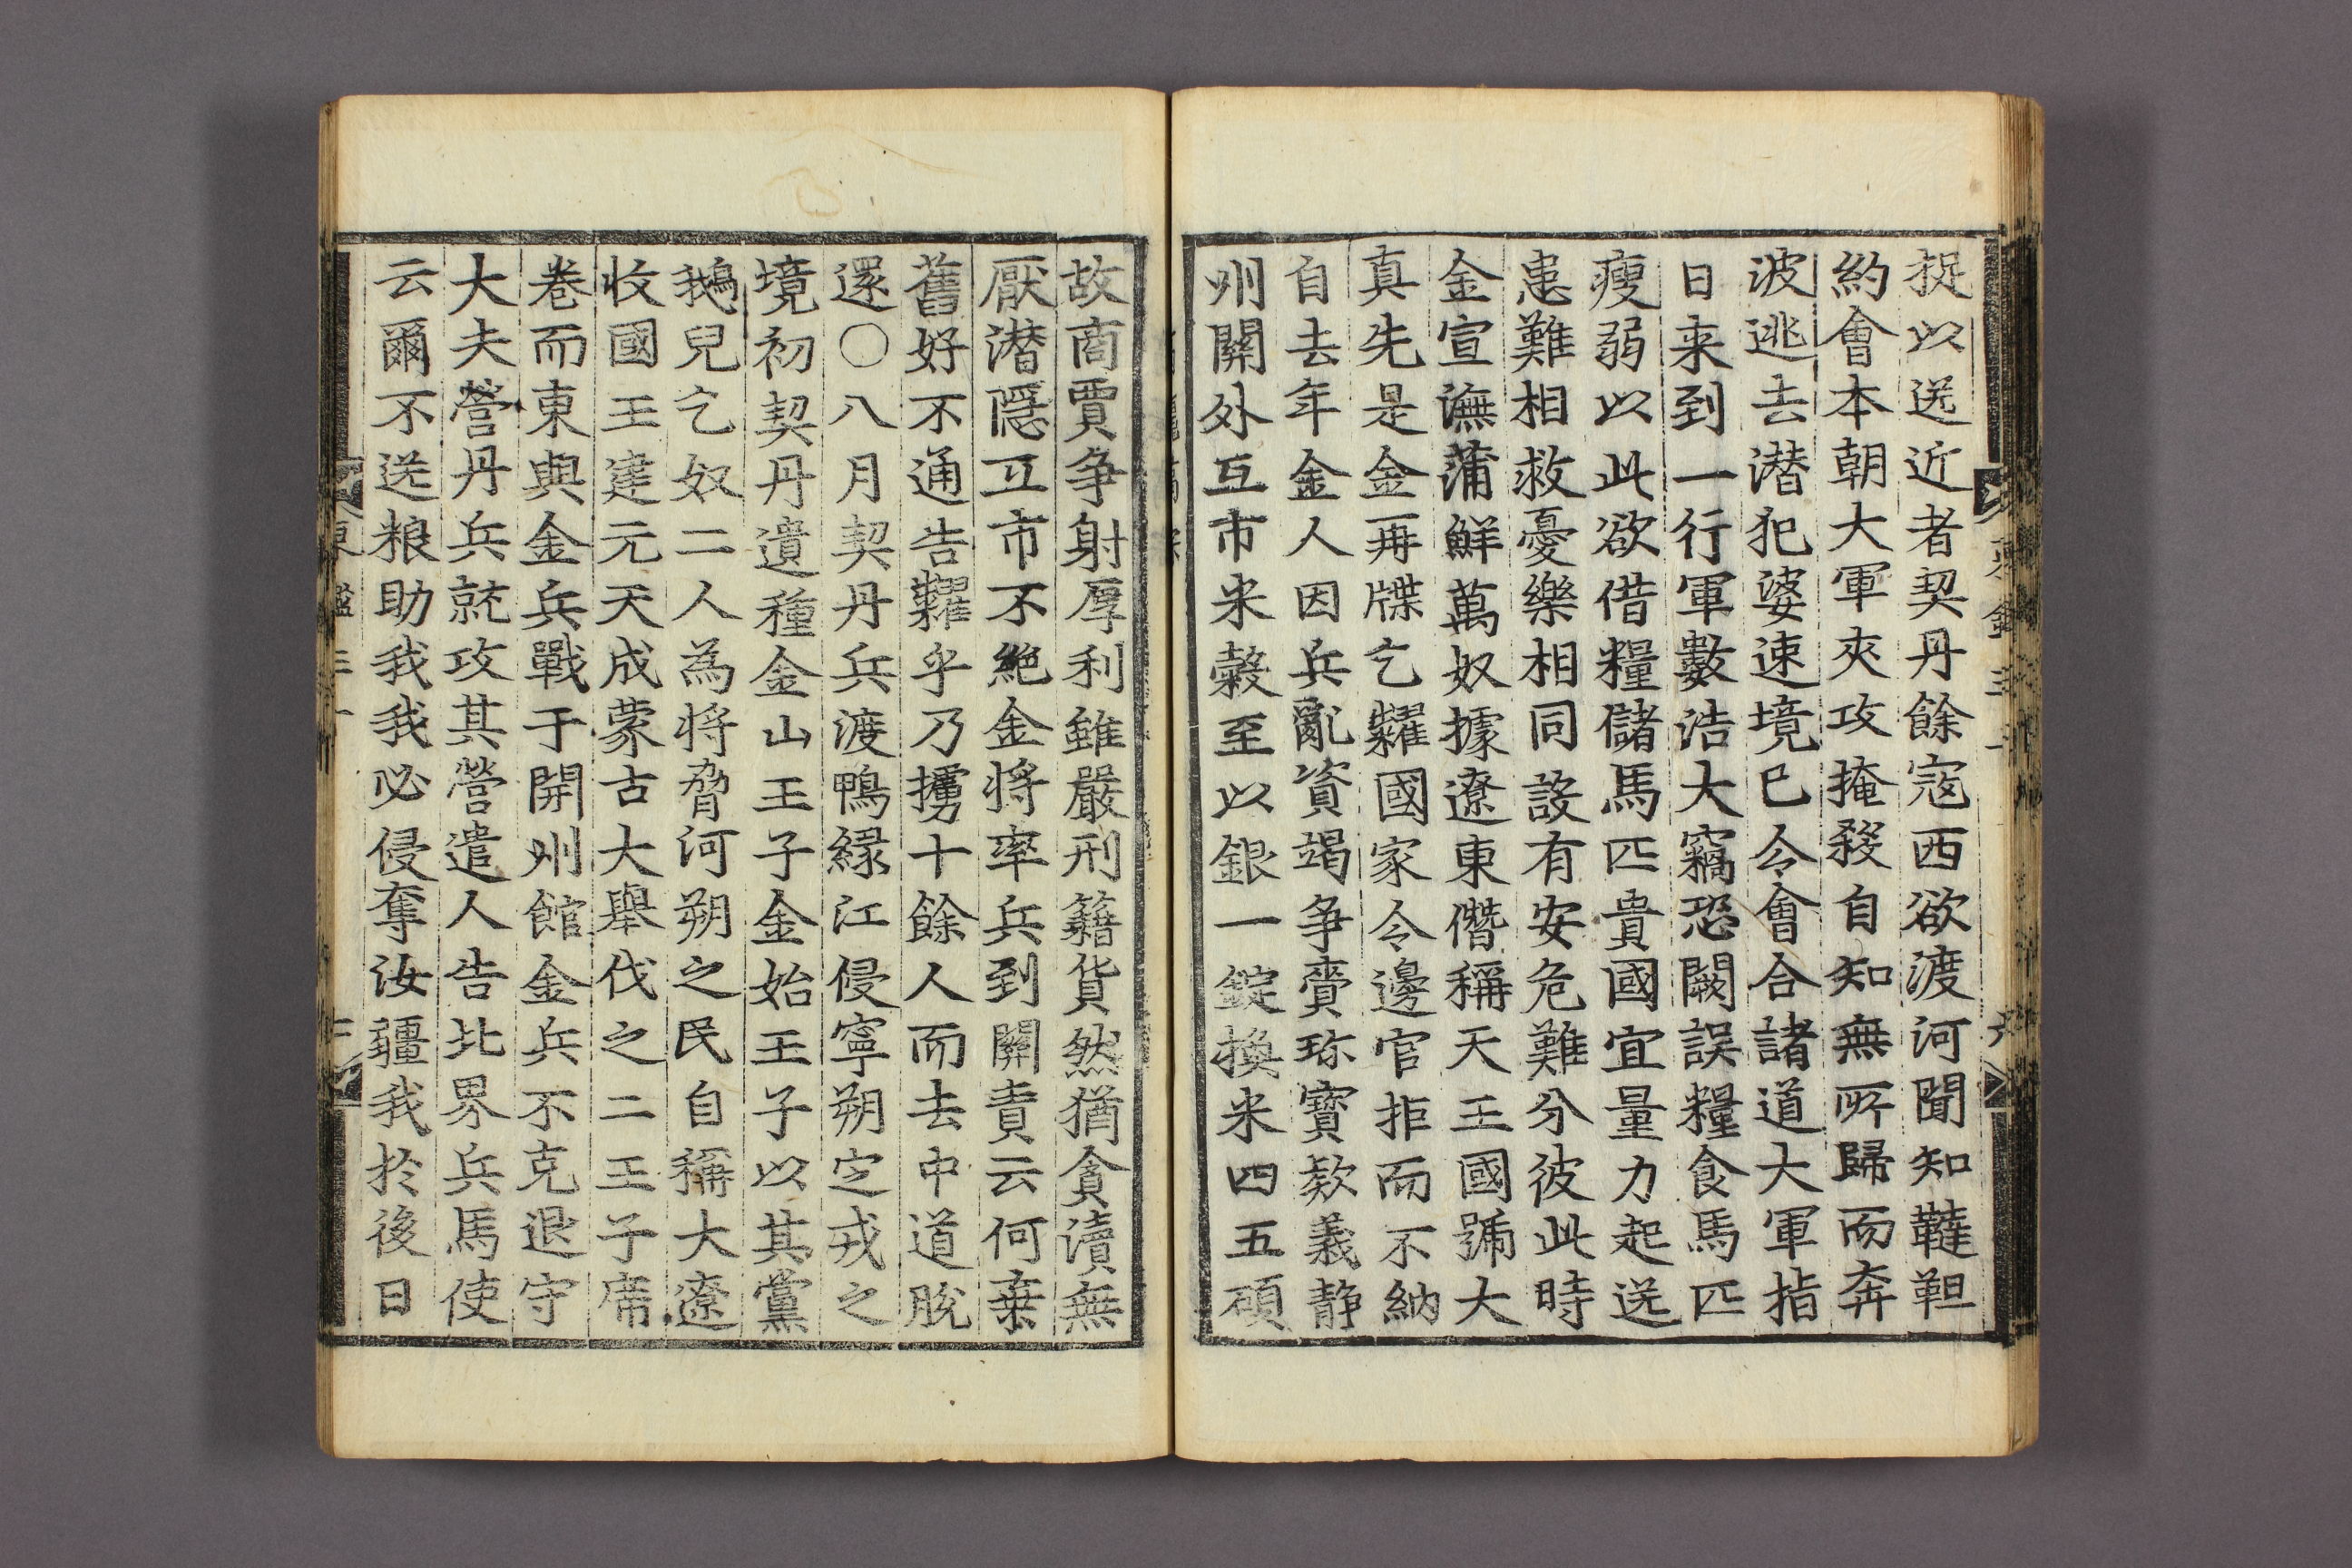 捉以送近者契丹餘寇西欲渡河聞知韃靼
約會本朝大軍夾攻掩殺自知無所歸而奔
波逃去潜犯婆速境巳令會合諸道大軍指
日来到一行軍數浩大竊恐闕誤糧食馬匹
瘦弱以此欲借糧儲馬匹貴國宜量力起送
患難相救憂樂相同設有安危難分彼此時
金宣潕蒲鮮萬奴據遼東僭稱天王國號大
真先是金再牒乞糶國家令邊官拒而不納
自去年金人因兵亂資竭争賣珎寶欵義静
州關外互市米糓至以銀一錠換米四五碩
故商賈争射厚利雖嚴刑籍貨然猶貪瀆無
厭潜隱互市不絶金將率兵到關責云何棄
舊好不通告糶乎乃擄十餘人而去中道脫
還〇八月契丹兵渡鴨緑江侵寧朔定戎之
境初契丹遺種金山王子金始王子以其黨
鵝兒乞奴二人為將脅河朔之民自稱大遼
收國王建元天成蒙古大舉伐之二王子席
卷而東與金兵戰于開州館金兵不克退守
大夫營丹兵就攻其營遣人告北界兵馬使
云爾不送粮助我我必侵奪汝疆我於後日